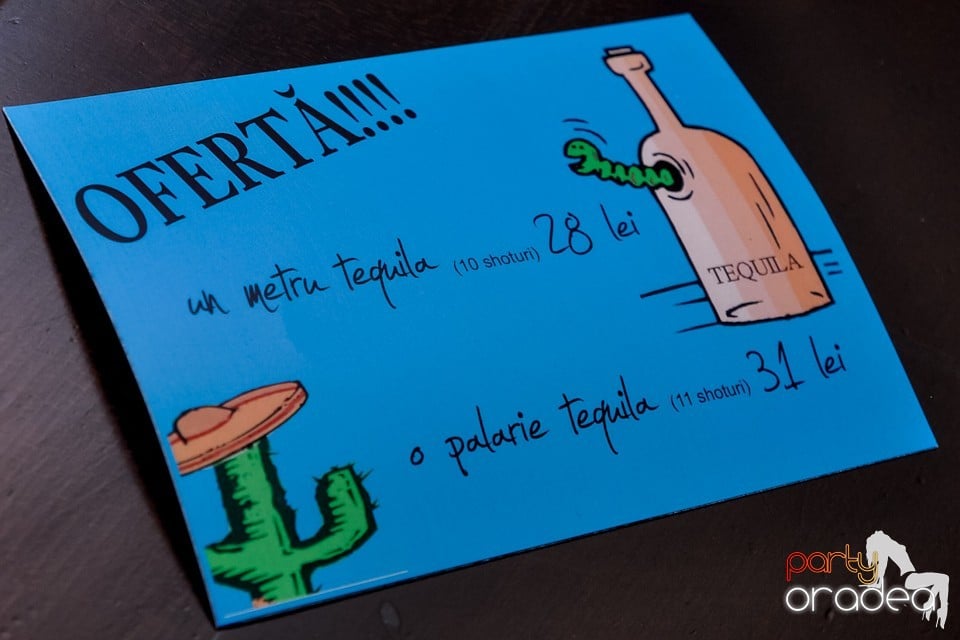 OFERTĂ!!!!
un metru tequila (10 shoturi) 28 lei
TEQUILA
o palarie tequila (11 shoturi) 31 lei
party
oradea